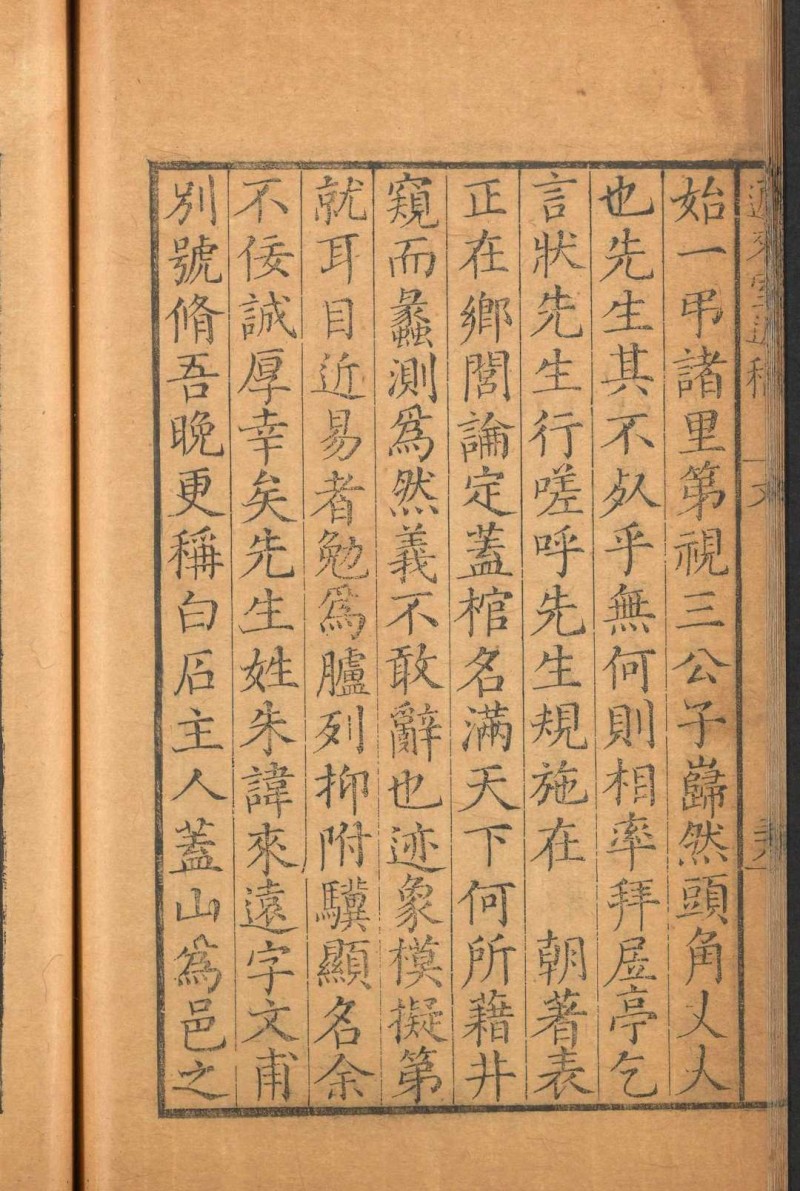 始一弔諸里第視三公子巋然頭角丈人
也先生其不㱙乎無何則相率拜屋亭乞
言狀先生行嗟呼先生規施在　朝著表
正在鄉閭論定蓋棺名滿天下何所藉井
窺而蠡測爲然義不敢辭也迹象模擬第
就耳目近易者勉爲臚列抑附驥顯名余
不佞誠厚幸矣先生姓朱諱來遠字文甫
別號脩吾晚更稱白石主人蓋山爲邑之